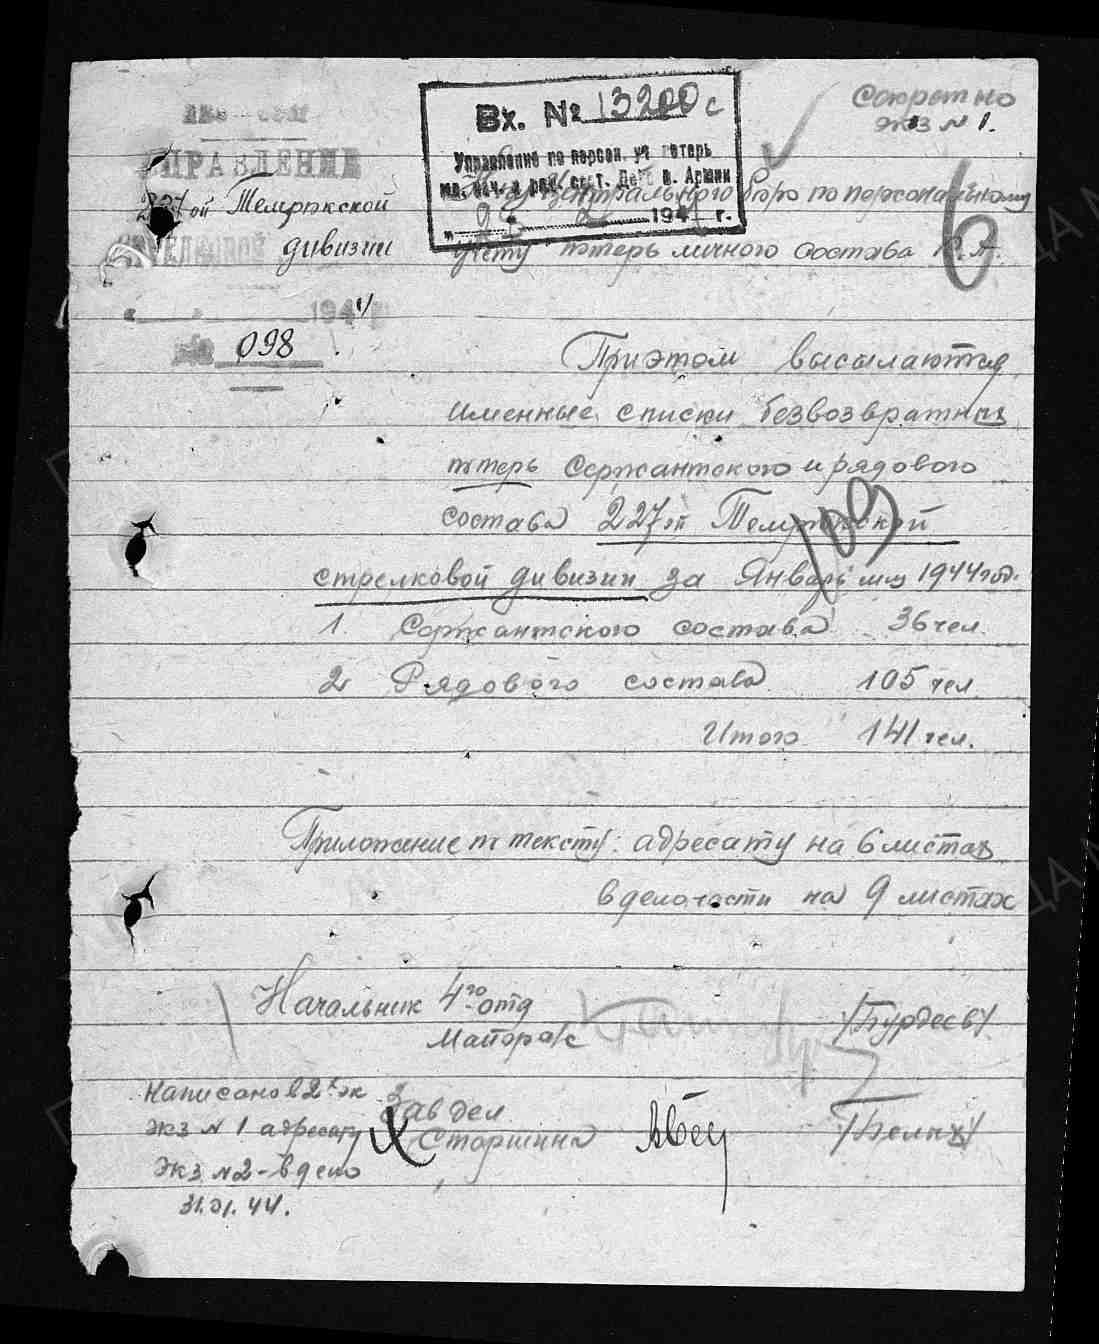 Секретно
экз № 1.
Вх. № 13200 с
Управление по персон. уч. потерь
мл. нач. и ряд. сост. Де в. Армии
194 г.
УПРАВЛЕНИЕ
227 ой Темрюкской
СТРЕЛКОВОЙ дивизии
194 4
№ 098
центрального бюро по персональному
учету потерь личного состава К.А.
6
При этом высылаются
именные списки безвозвратных
потерь сержантского и рядового
состава 227 ой Темрюкской
109
стрелковой дивизии за Январь м-ц 1944 год.
1. Сержантского состава 36 чел.
2 Рядового состава 105 чел.
Итого 141 чел.
Приложение по тексту: адресату на 6 листах
в дело части на 9 листах
Начальник 4го отд
Майор а/с /Бурдеев/
Написано в 2х эк
Зав дел
экз № 1 адресату
Старшина
Экз №2 - в дело
31.01.44.